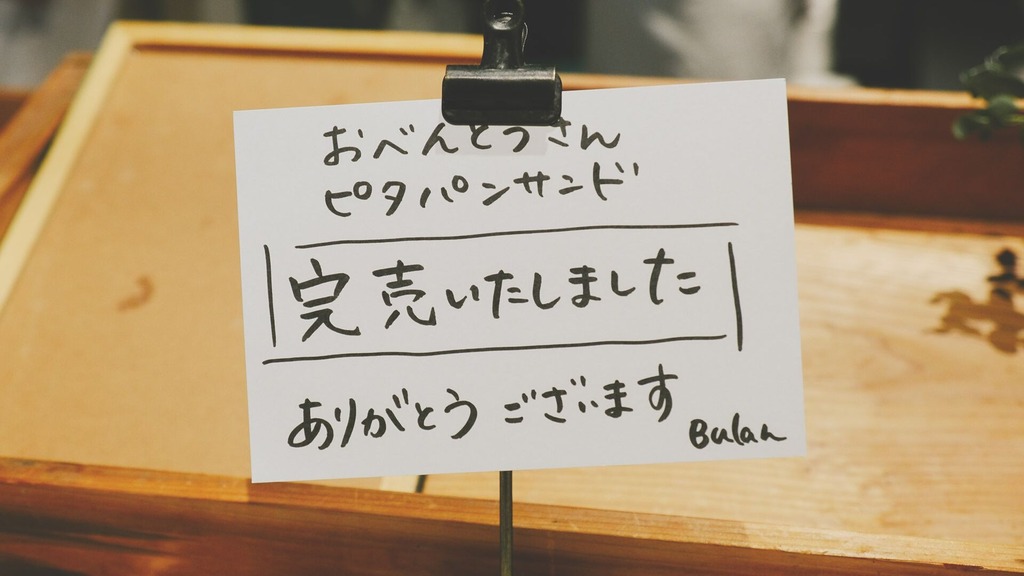 おべんとうさん
ピタパンサンド
完売いたしました
ありがとうございます
Bulan